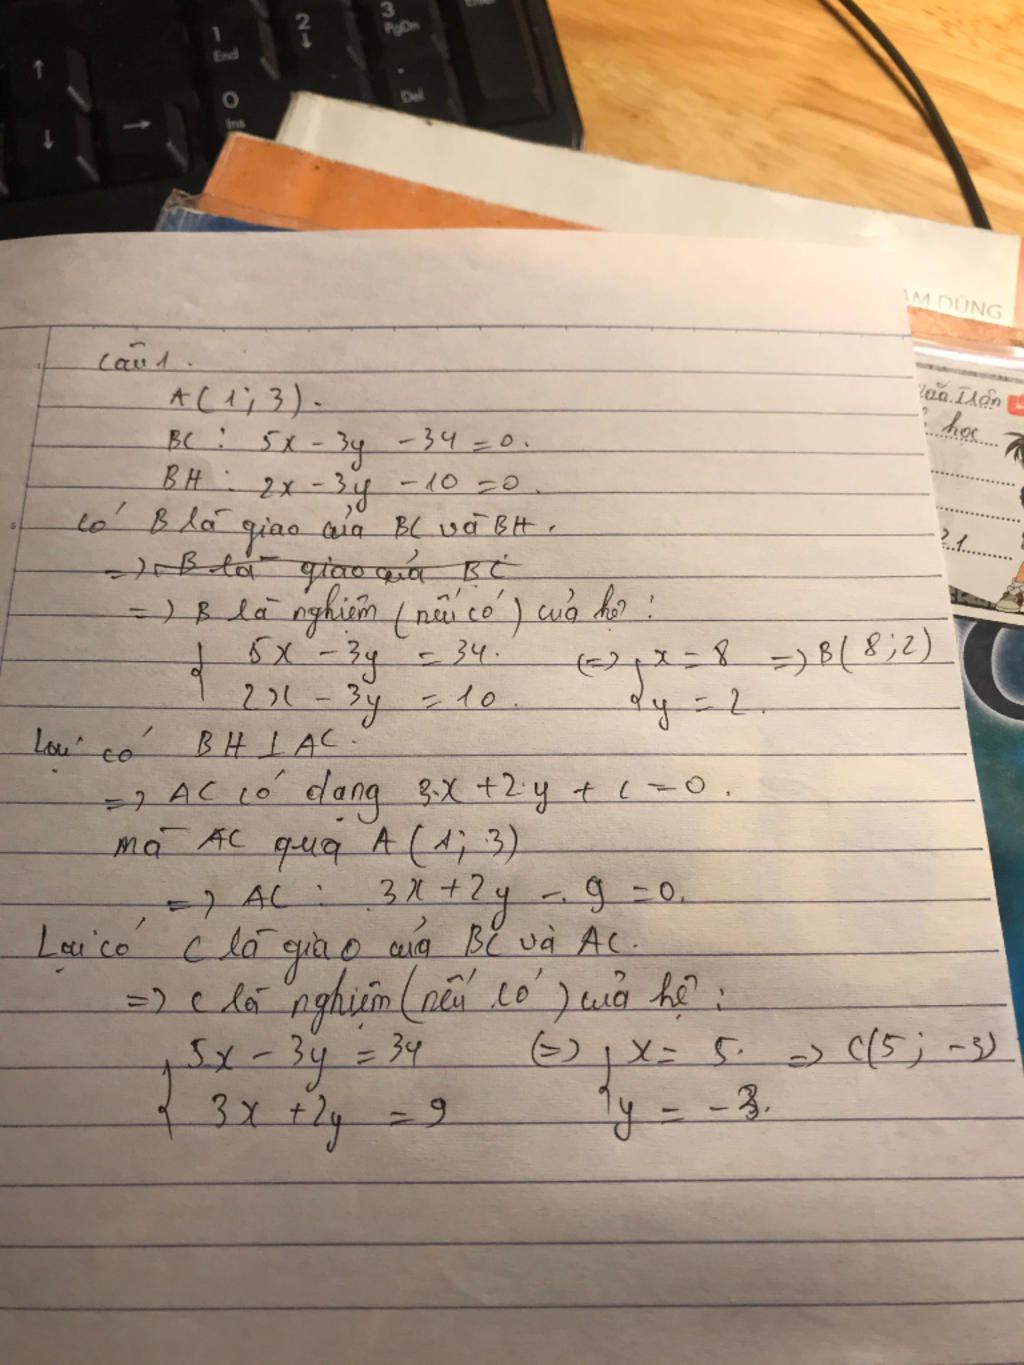 1
End
2
↓
3
PgDn
↑
0
Ins
.
Del
↓
→
ẦM DŨNG
học
21
Câu 1.
A(1; 3).
BC: 5x - 3y - 34 = 0.
BH: 2x - 3y - 10 = 0.
Có B là giao của BC và BH.
=> B là giao của BC
=> B là nghiệm (nếu có) của hệ:
5x - 3y = 34. <=> x = 8 => B(8; 2)
2x - 3y = 10. y = 2.
Lại có BH ⊥ AC.
=> AC có dạng 3.x + 2.y + c = 0.
mà AC qua A(1; 3)
=> AC: 3x + 2y - 9 = 0.
Lại có C là giao của BC và AC.
=> C là nghiệm (nếu có) của hệ:
5x - 3y = 34 <=> x = 5. => C(5; -3)
3x + 2y = 9 y = -3.